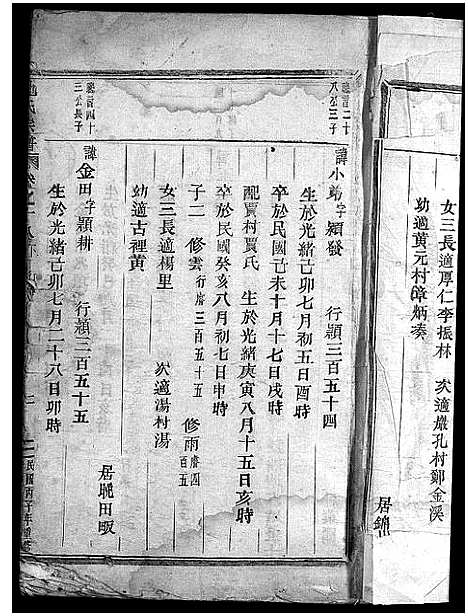 女三長適厚仁李振林 次適巖孔村鄭金溪
幼適黃元村
居錦
聰言二十
八公三子
諱小 字穎發 行穎三百五十四
生於光緒己卯七月初五日酉時
卒於民國己未十月十七日戌時
配賈村賈氏 生於光緒庚寅八月十五日亥時
卒於民國癸亥八月初七日申時
子二 修雲 行 三百五十五 修雨 四百五
女三長適楊里 次適湯村湯
幼適古裡黃
居 田畈
聰言四十
三公長子
諱金田字穎耕 行穎三百五十五
生於光緒己卯七月二十八日卯時